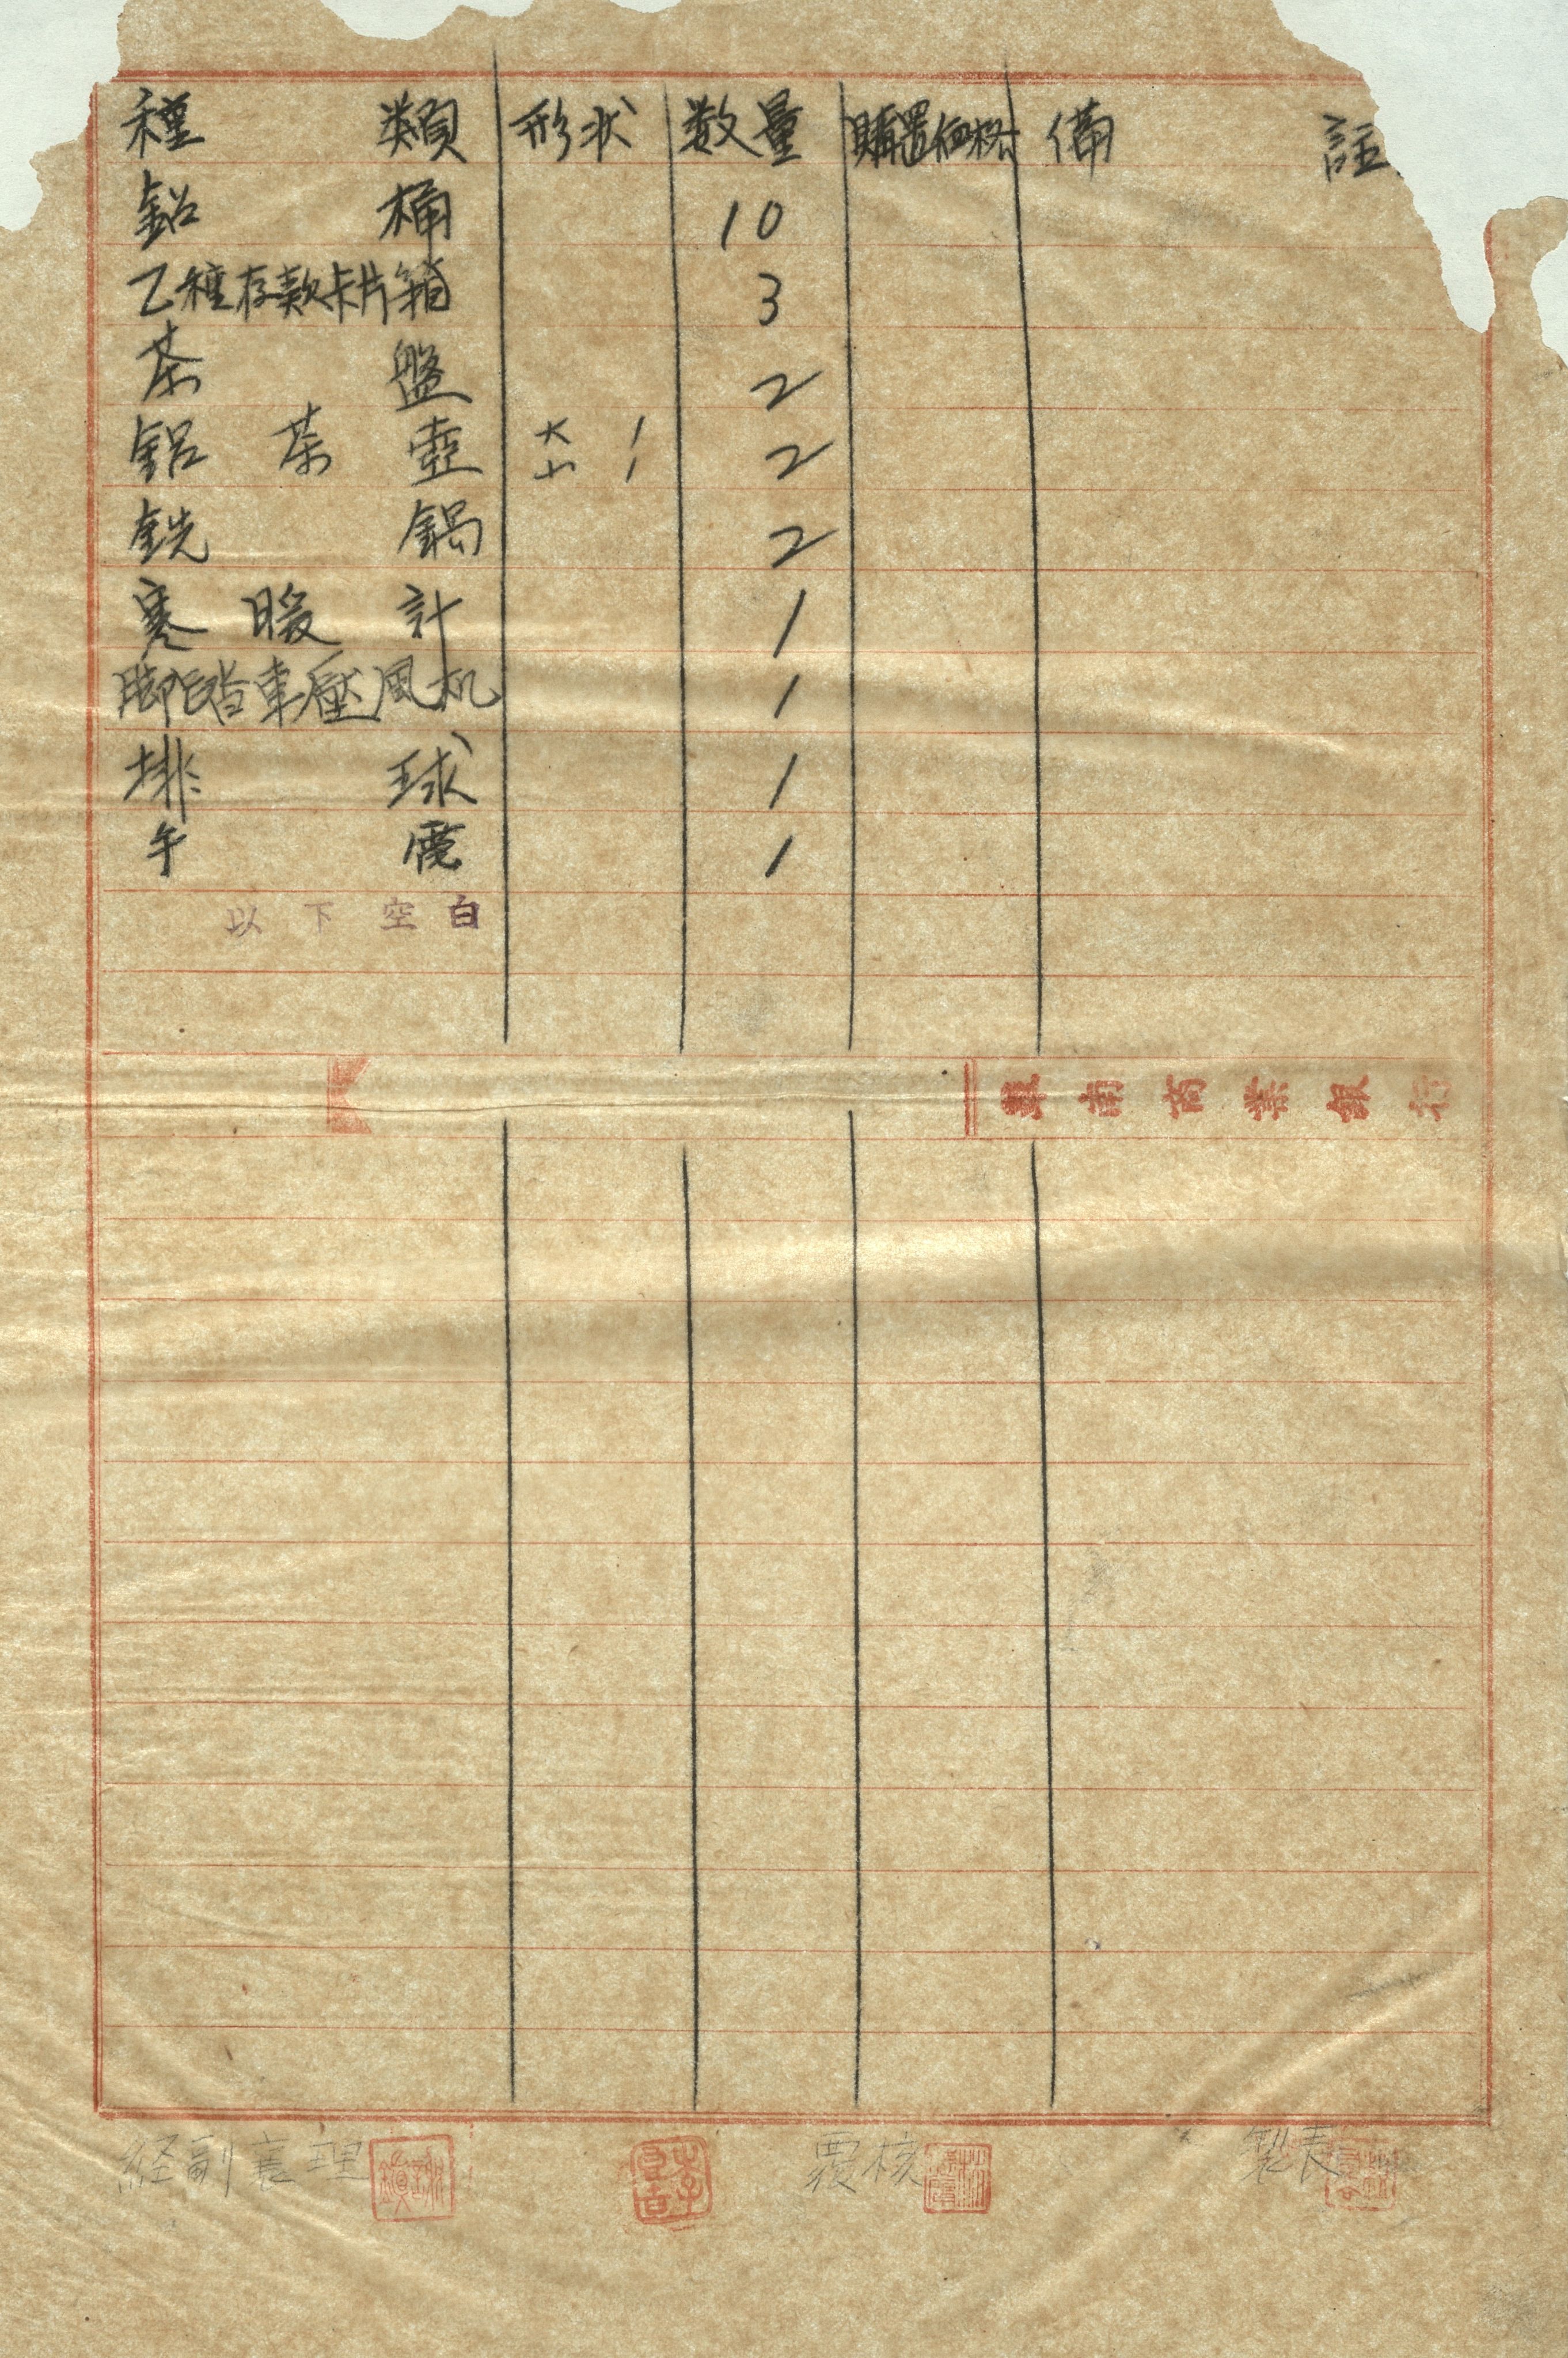 種類 形状 数量 購置価格 備註
鉛桶 10
乙種存款卡片箱 3
茶盤 2
鋁茶壺 大 1 小 1 2
銑鍋 2
寒暖計 1
脚踏車壓風机 1
排球 1
手電 1
以下空白
東南商業銀行
経副襄理 覆核 製表